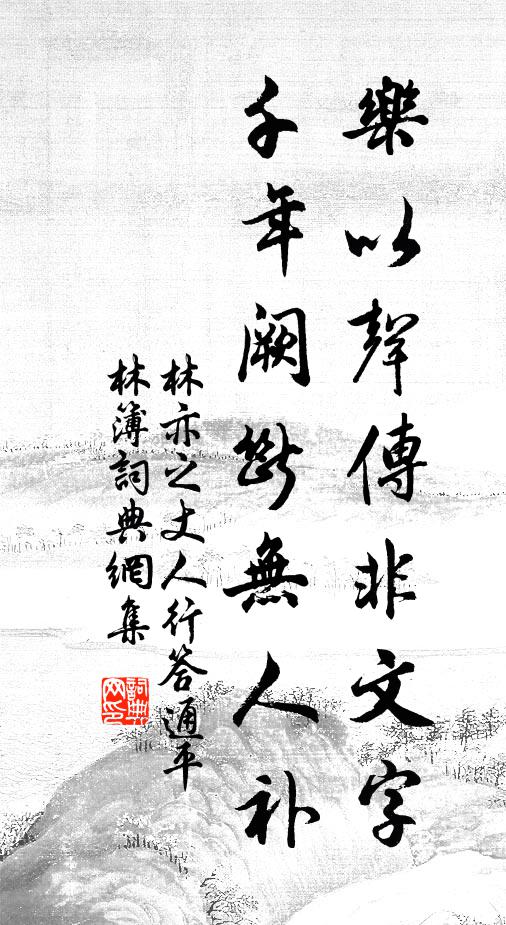 樂以聲傳非文字
千年阙斷無人补
林亦之丈人行答通平
林簿詞典網集
詞典網印